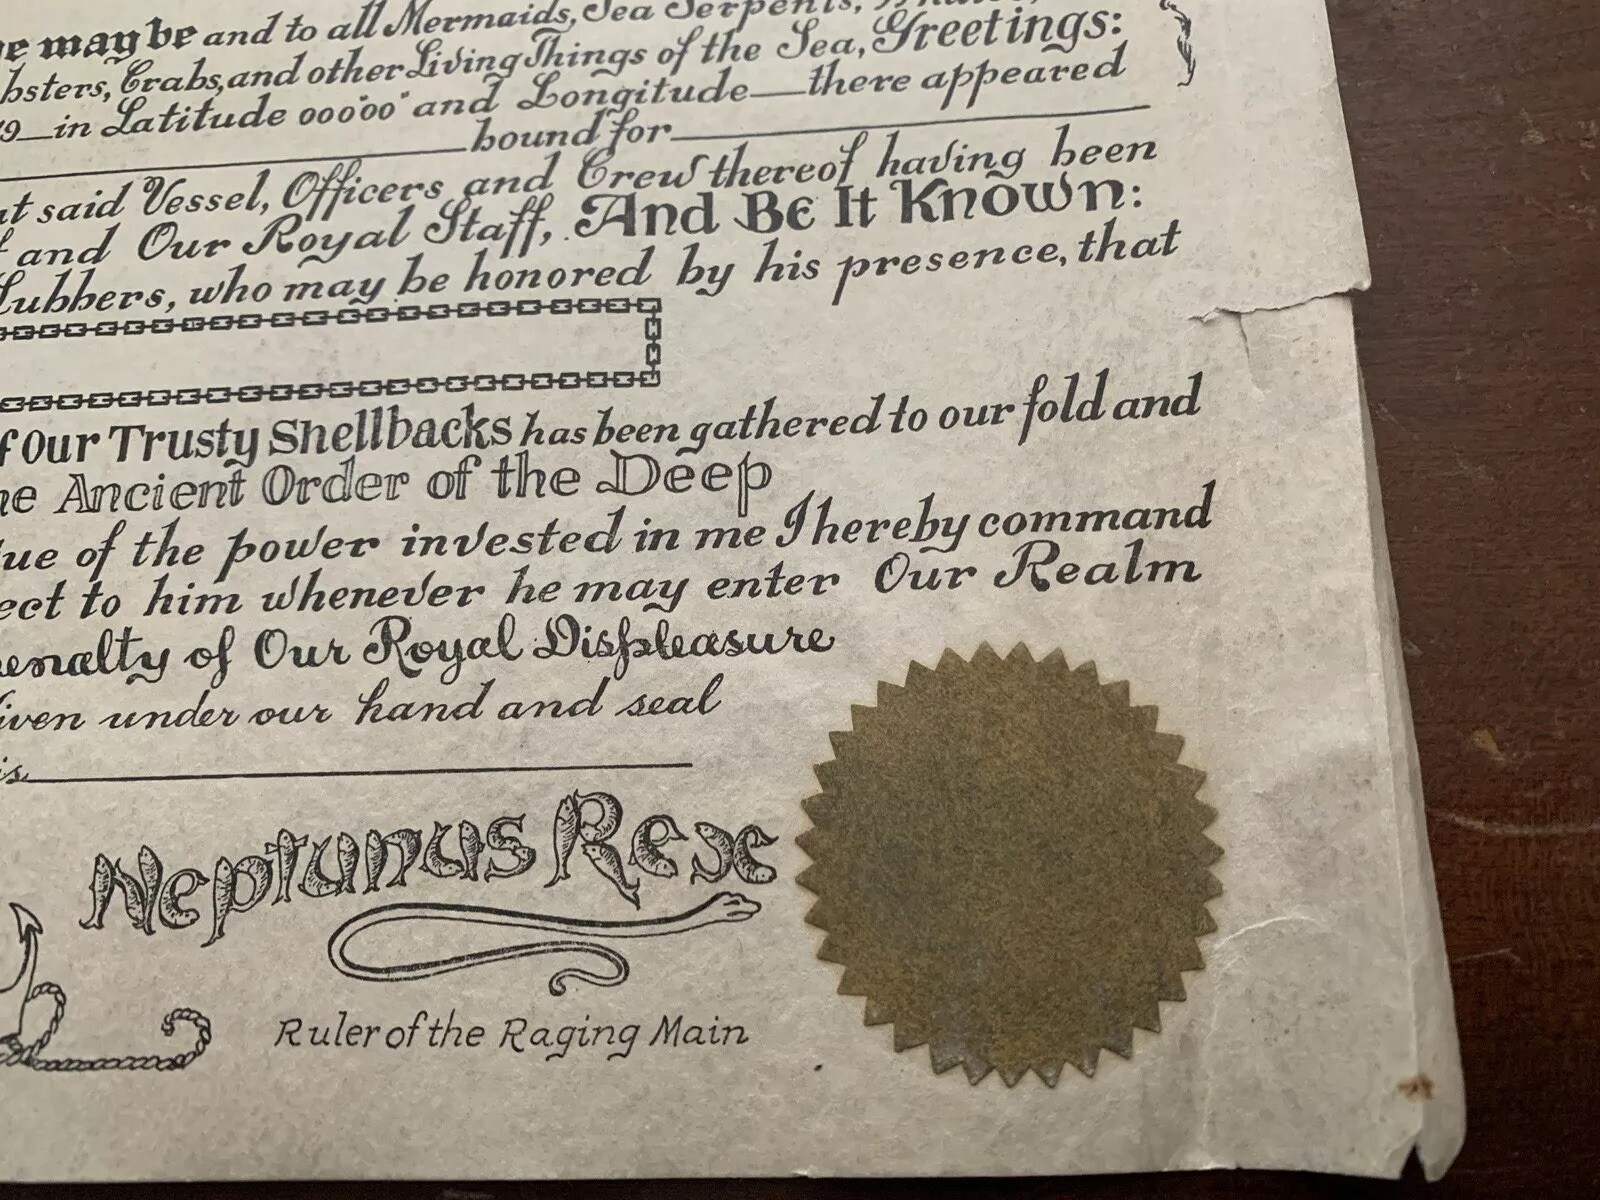 may be and to all Mermaids, Sea Serpents,
bsters, Crabs, and other Living Things of the Sea, Greetings:
19__in Latitude 00000 and Longitude___there appeared
bound for
at said Vessel, Officers and Crew thereof having been
and Our Royal Staff, And Be It Known:
lubbers, who may be honored by his presence, that
f Our Trusty Shellbacks has been gathered to our fold and
he Ancient Order of the Deep
tue of the power invested in me I hereby command
ect to him whenever he may enter Our Realm
enalty of Our Royal Displeasure
iven under our hand and seal
is
Neptunus Rex
Ruler of the Raging Main